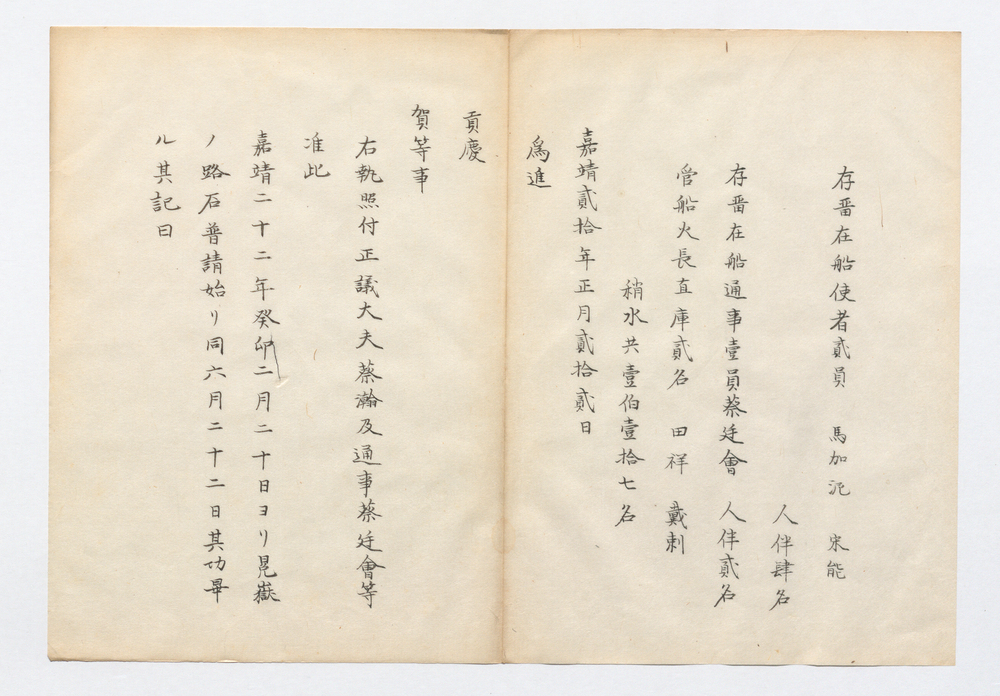 存畱在船使者貳員　馬加泥　宋能
人伴肆名
存畱在船通事壹員蔡廷會　人伴貳名
管船火長直庫貳名　田祥　戴刺
稍水共壹伯壹拾七名
嘉靖貳拾年正月貳拾貳日
爲進
貢慶
賀等事
右執照付正議大夫蔡瀚及通事蔡廷會等
准此
嘉靖二十二年癸卯二月二十日ヨリ冕嶽
ノ路石普請始リ同六月二十二日其功畢
ル其記曰